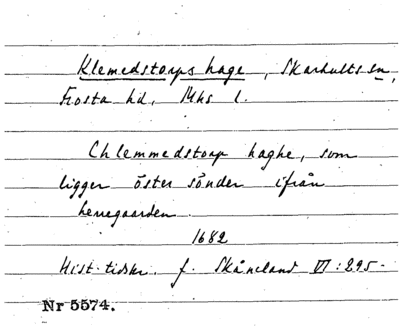 Klemedstorps hage, Skarhults sn,
Frosta hd, Mhs l.
Chlemmedstorp haghe, som
ligger öster sönder ifrån
herregaarden.
1682
Hist. tidskr. f. Skåneland VI: 295-
Nr 5574.